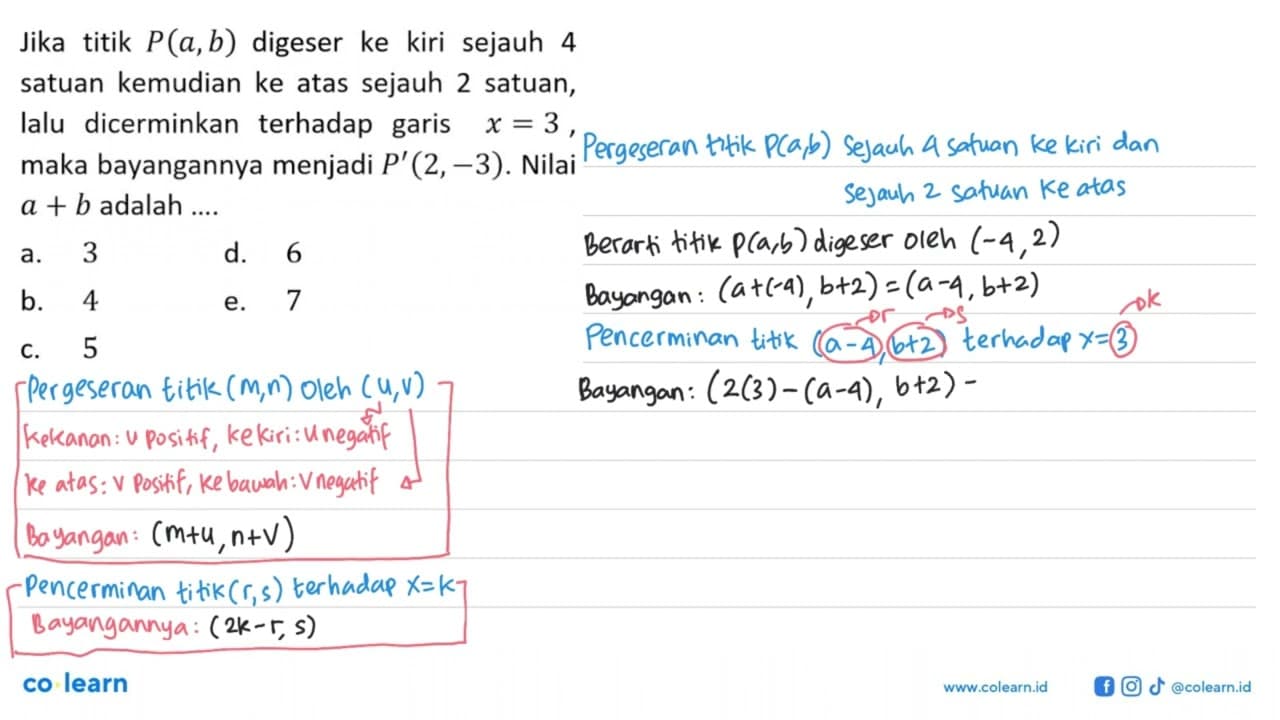 Jika titik P(a, b) digeser ke kiri sejauh 4
satuan kemudian ke atas sejauh 2 satuan,
lalu dicerminkan terhadap garis x = 3 ,
maka bayangannya menjadi P′(2, −3). Nilai
a + b adalah ....
a. 3 d. 6
b. 4 e. 7
c. 5
Pergeseran titik (m,n) oleh (u,v)
kekanan: u positif, kekiri: u negatif
ke atas: v positif, kebawah: v negatif
Bayangan: (m+u, n+v)
Pencerminan titik (r,s) terhadap x=k
Bayangannya: (2k-r, s)
Pergeseran titik P(a,b) sejauh 4 satuan ke kiri dan
sejauh 2 satuan ke atas
Berarti titik P(a,b) digeser oleh (-4, 2)
Bayangan: (a+(-4), b+2) = (a-4, b+2)
r s k
Pencerminan titik (a-4, b+2) terhadap x=3
Bayangan: (2(3)-(a-4), b+2) -
co learn
www.colearn.id
@colearn.id